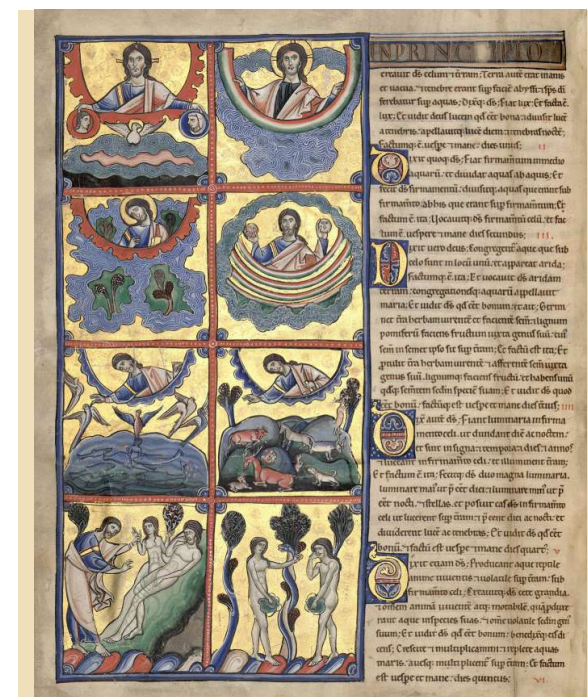 IN PRINCIPIO
creauit ds celum ⁊ tram; Terra autē erat inanis
et uacua. ⁊ tenebre erant sup faciē abyssi: ⁊ sps di
ferebatur sup aquas; Dixq; ds; Fiat lux; Et facta ē
lux; Et uidit deus lucem qd eēt bona: ⁊ diuisit lucē
a tenebris; appellauitq; lucē diem: ⁊ tenebras noctē;
Factumq; ē uespe ⁊ mane: dies unus; II
Dixit quoq; ds; Fiat firmamtum in medio
aquarū: et diuidat aquas ab aquis; Et
fecit ds firmamentū: diuisitq; aquas que erant sub
firmamto ab his que erant sup firmamtū; Et
factum ē ita; Uocauitq; ds firmamtū celū: et fac
tum ē uespere ⁊ mane dies secundus; III
Dixit uero deus; Congregentˀ aque que sub
celo sunt in locū unū: et appareat arida;
Factumq; ē ita; Et uocauit ds aridam
terram: congregationesq; aquarū appellauit
maria; Et uidit ds qd eēt bonum: et ait; Germi
net tra herbam uirentē et facientē sem̄: ⁊ lignum
pomiferū faciens fructum iuxta genus suū: cuiˀ
sem̄ in semet ipso sit sup tram; Et factū ē ita; Et
ptulit tra herbam uirentē ⁊ afferentē sem̄ iuxta
genus suū. lignumq; faciens fructū: et habens unū
qdq; sementem sedm̄ speciē suam; Et uidit ds quod
eēt bonū: factūq; est uespe et mane dies tcius; IIII
Dixē autē ds; Fiant luminaria in firma
mento celi: ut diuidant diē ac noctem:
et sint in signa: ⁊ tempora: ⁊ dies: ⁊ annos:
⁊ luceant in firmamto celi: et illuminent tram;
Et factum ē ita; Fecitq; ds duo magna luminaria.
luminare maiˀ ut p eēt diei: ⁊ luminare minˀ ut p
eēt nocti. ⁊ stellas. et posuit eas ds in firmamto
celi ut lucerent sup tram: ⁊ p eent diei ac nocti: et
diuiderent lucē ac tenebras; Et uidit ds qd eēt
bonū; ⁊ factū est uespe ⁊ mane dies quartˀ; V
Dixit etiam ds; Producant aque reptile
anime uiuentis ⁊ uolatile sup tram: sub
firmamto celi; Et creauitq; ds cete grandia.
⁊ omem animā uiuentē atq; motabilē. quā pdux
rant aque in species suas. ⁊ ome uolatile sedm̄ genˀ
suum; Et uidit ds qd eēt bonum: benedixq; eis di
cens; Crescite ⁊ multiplicamini: ⁊ replete aquas
maris: auesq; multiplicentˀ sup tram; Et factum
est uespe et mane: dies quintus; VI